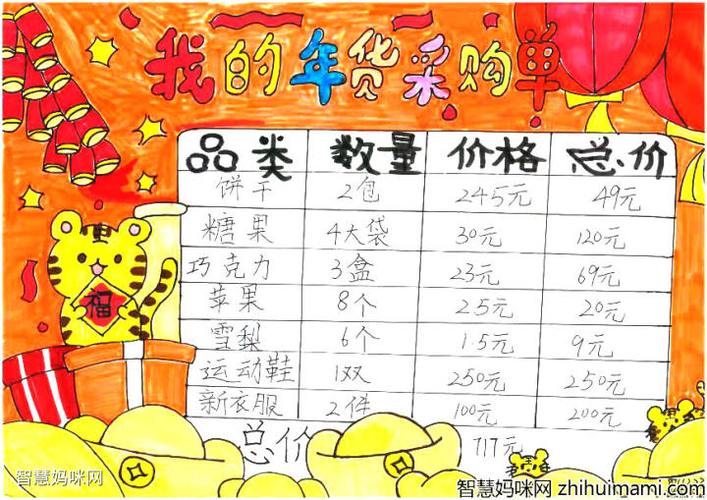 我的年货采购单
品类 数量 价格 总价
饼干 2包 24.5元 49元
糖果 4大袋 30元 120元
巧克力 3盒 23元 69元
苹果 8个 2.5元 20元
雪梨 6个 1.5元 9元
运动鞋 1双 250元 250元
新衣服 2件 100元 200元
总价 717元
福
智慧妈咪网
智慧妈咪网 zhihuimami.com